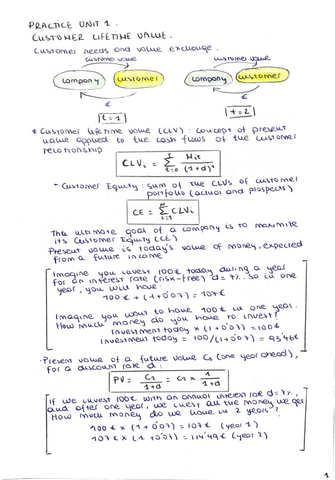 PRACTICE UNIT 1.
CUSTOMER LIFETIME VALUE.
Customer needs and value exchange.
customer value
customer value
company
customer
company
customer
€
€
t=1
t=2
* Customer lifetime value (CLV): concept of present
value applied to the cash flows of the customer
relationship
CLVi = Σ Mit / (1+d)^t
t=0
- Customer Equity: sum of the CLVs of customer
portfolio (actual and prospects)
CE = Σ CLVi
i=1
The ultimate goal of a company is to maximize
its Customer Equity (CE)
Present value is today's value of money, expected
from a future income
Imagine you invest 100€ today during a year
for an interest rate (risk-free) d= 7%. So in one
year, you will have:
100€ * (1+0'07) = 107€
Imagine you want to have 100€ in one year.
How much money do you have to invest?
Investment today × (1+0'07) = 100€
Investment today = 100/(1+0'07) = 93'46€
· Present value of a future value C1 (one year ahead),
for a discount rate d:
PV = C1 / 1+d = C1 × 1 / 1+d
If we invest 100€ with an annual interest rate d=7%,
and after one year, we invest all the money we get
How much money do we have in 2 years?
100€ × (1+0'07) = 107€ (year 1)
107€ × (1+0'07) = 114'49€ (year 2)
1